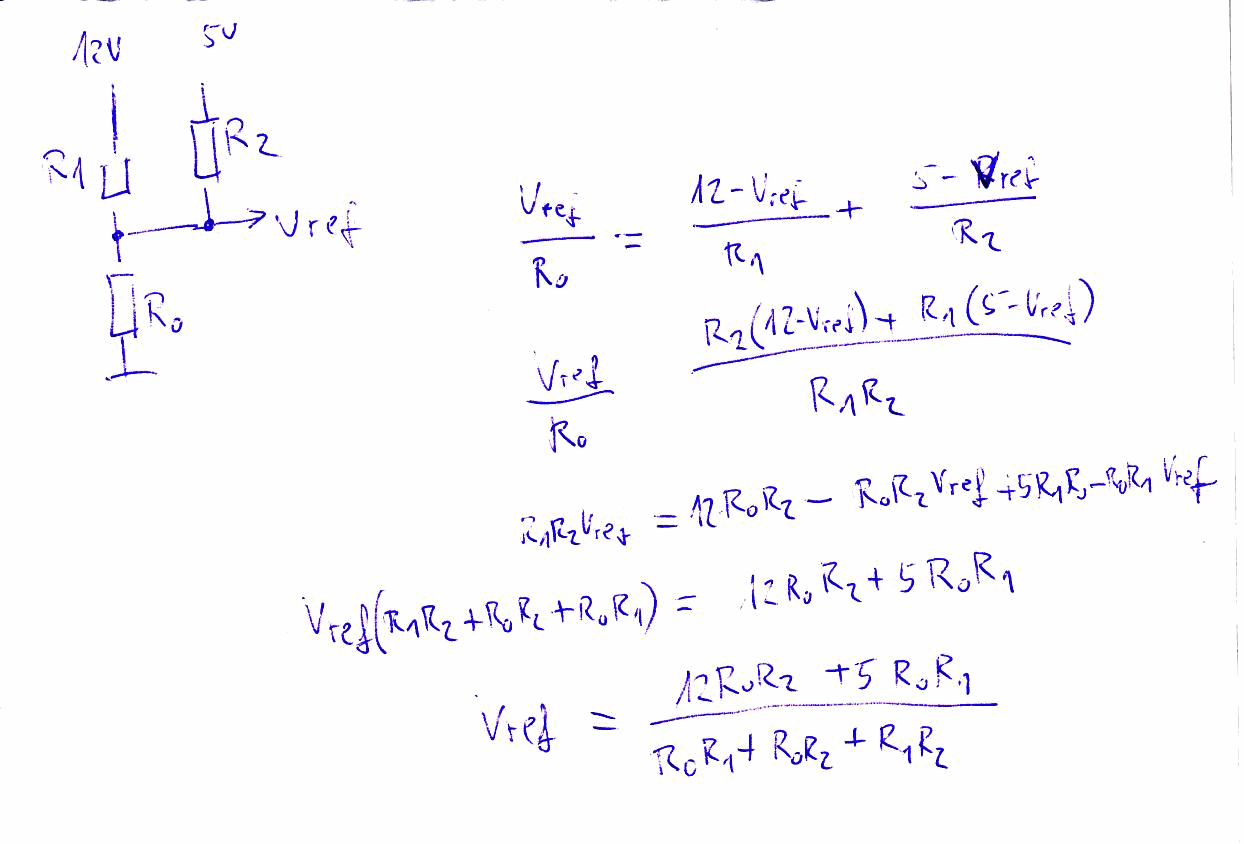 12V 5V
R1 R2
Vref
R0
Vref/R0 = (12-Vref)/R1 + (5-Vref)/R2
Vref/R0 (R2(12-Vref) + R1(5-Vref))/(R1R2)
R1R2Vref = 12R0R2 - R0R2Vref + 5R1R0 - R0R1Vref
Vref(R1R2 + R0R2 + R0R1) = 12R0R2 + 5R0R1
Vref = (12R0R2 + 5R0R1)/(R0R1 + R0R2 + R1R2)